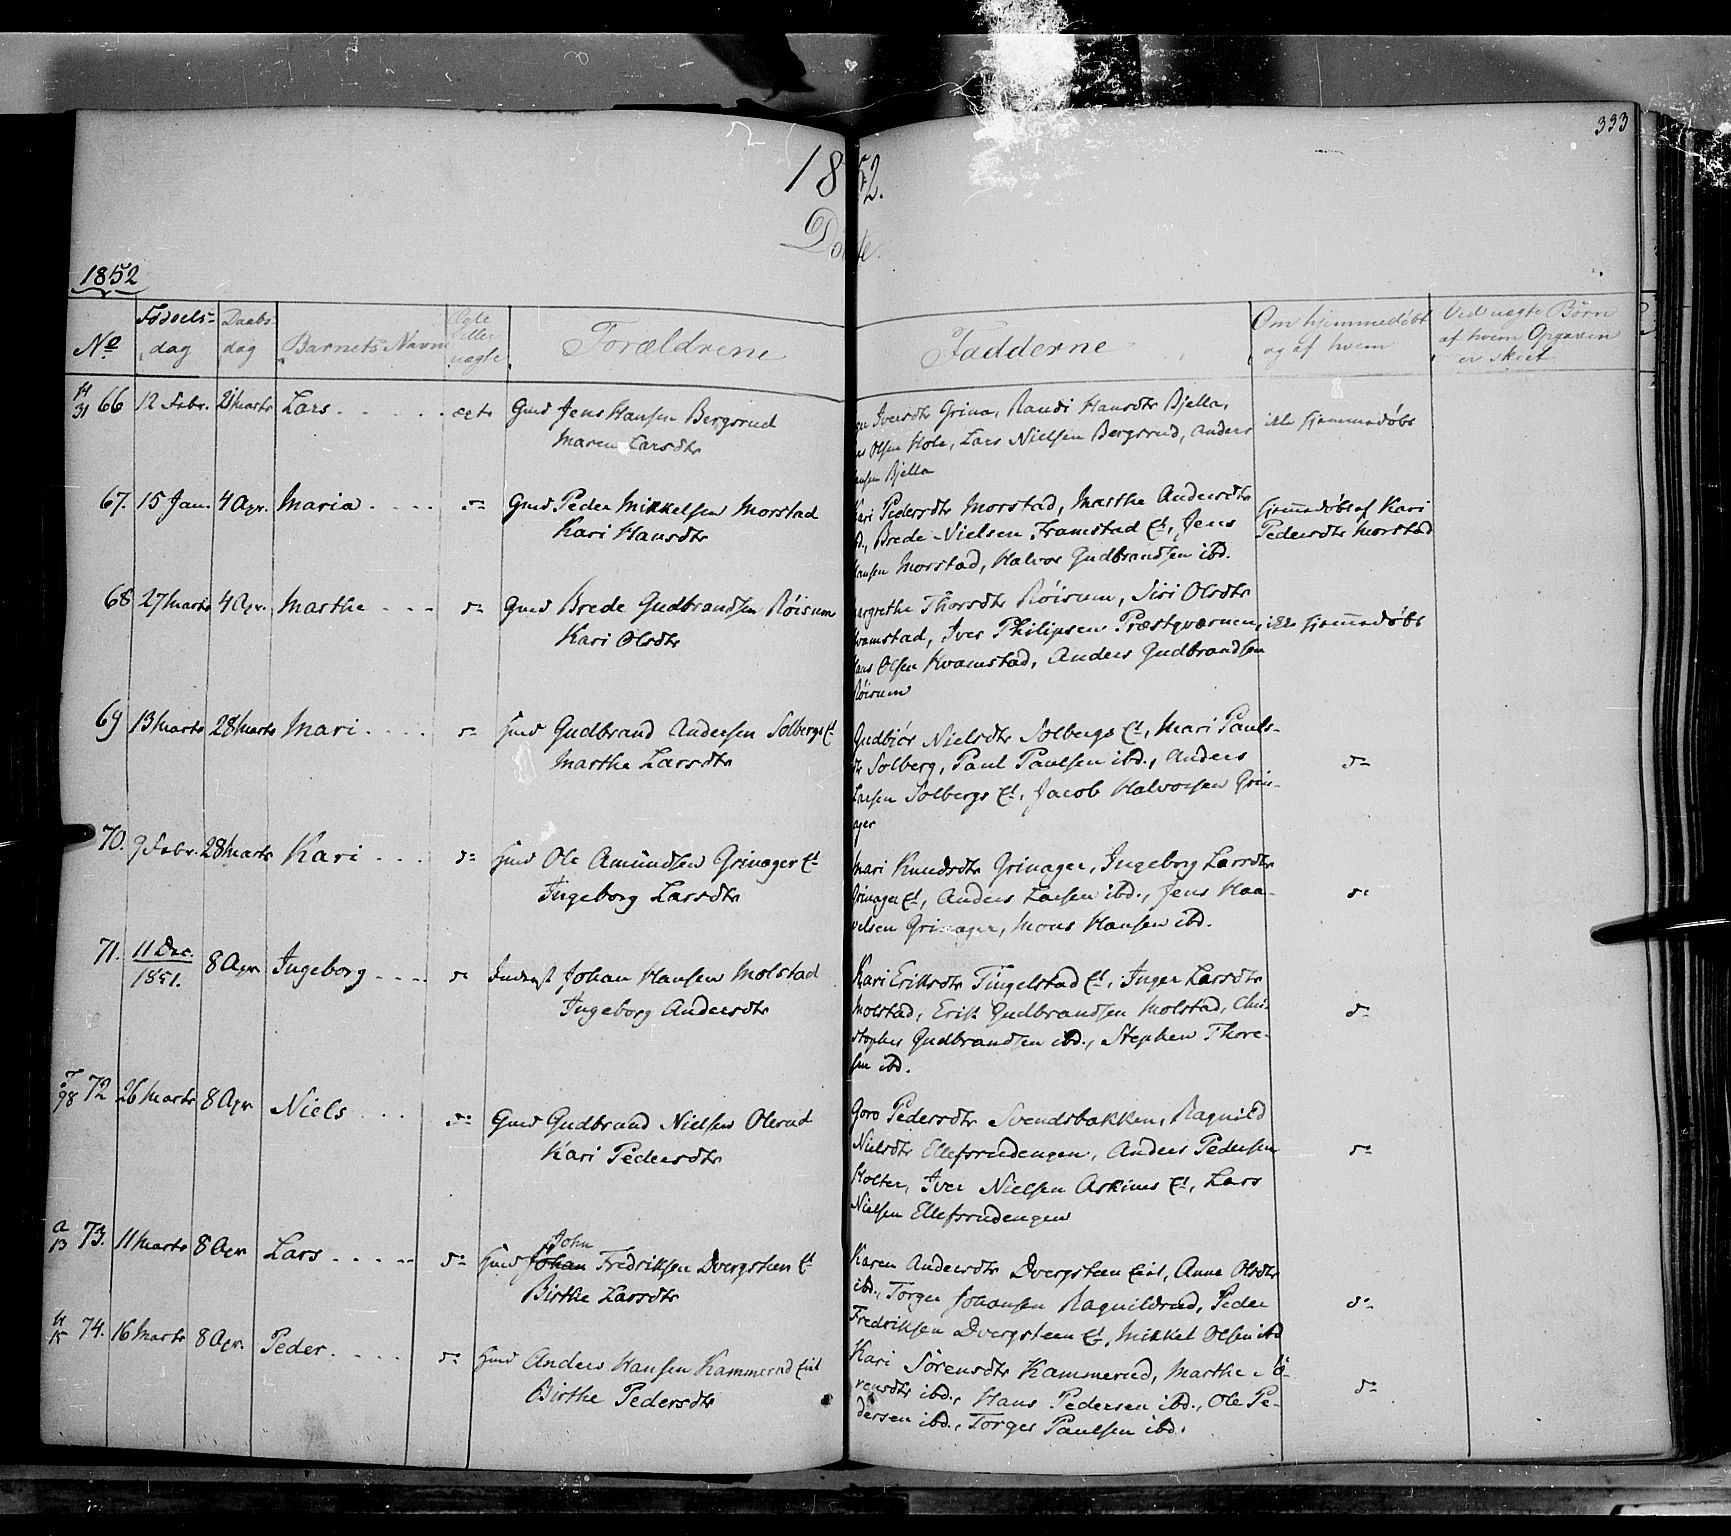 333
1852.
Døbte.
1852
No
Fødsels-
dag
Daabs-
dag
Barnets Navn
Ægte
eller
uægte
Forældrene
Fadderne
Om hjemmedøbt
og af hvem
Ved uægte Børn
af hvem Opgaven
er skeet
66 12 Febr. 21 Marts Lars . . . . . ægte Gmd Jens Hansen Bergsrud
Maren Larsdtr
Iversdtr Grina, Randi Hansdtr Bjella,
Olsen Hole, Lars Nielsen Bergsrud, Anders
Hansen Bjella
ikke hjemmedøbt
67. 15 Jan. 4 Apr. Maria . . . . do Gmd Peder Mikkelsen Morstad
Kari Hansdtr
Kari Pedersdtr Morstad, Marthe Andersdtr
ibd., Brede Nielsen Framstad Et, Jens
Hansen Morstad, Halvor Gudbrandsen ibd.
hjemmedøbt af Kari
Pedersdtr Morstad
68 27 Marts 4 Apr. Marthe - - - do Gmd Brede Gudbrandsen Røisum
Kari Olsdtr
Margrethe Thorsdtr Røisum, Siri Olsdtr
Kvamstad, Iver Philipsen Præstqværnen,
Hans Olsen Kvamstad, Anders Gudbrandsen
Røisum
ikke hjemmedøbt
69 13 Marts 28 Marts Mari . . . . do Hmd Gudbrand Andersen Solbergs Et
Marthe Larsdtr
Gudbiør Nielsdtr Solbergs Et, Mari Pauls-
dtr Solberg, Paul Paulsen ibd., Anders
Larsen Solbergs Et, Jacob Halvorsen Grin-
ager
do
70. 9 Febr. 28 Marts Kari . . . do Hmd Ole Amundsen Grinager Et
Ingeborg Larsdtr
Mari Knudsdtr Grinager, Ingeborg Larsdtr
Grinager Et, Anders Larsen ibd., Jens Haa-
velsen Grinager, Mons Hansen ibd.
do
71. 11 Dec.
1851. 8 Apr. Ingeborg - - - do Inderst Johan Hansen Molstad
Ingeborg Andersdtr
Kari Eriksdtr Tingelstad Et, Inger Larsdtr
Molstad, Erik Gudbrandsen Molstad, Chri-
stopher Gudbrandsen ibd., Stephen Thore-
sen ibd.
do
98 72 26 Marts 8 Apr Niels . . . do Gmd Gudbrand Nielsen Olerud
Kari Pedersdtr
Goro Pedersdtr Svendsbakken, Ragnild
Nielsdtr Ellefsrudengen, Anders Pedersen
Holter, Iver Nielsen Askims Et, Lars
Nielsen Ellefsrudengen
do
a
13 73. 11 Marts 8 Apr Lars . . . . . do Hmd Johan Fredriksen Dvergsteen Et
John
Birthe Larsdtr
Karen Andersdtr Dvergsteen Eiet, Anne Olsdtr
ibd., Torger Johansen Ragnildrud, Peder
Fredriksen Dvergsteen Et, Mikkel Olsen ibd
do
15 74. 16 Marts 8 Apr. Peder . . . . do Hmd Anders Hansen Kammerud Eiet
Birthe Pedersdtr
Kari Sørensdtr Kammerud, Marthe Sø-
rensdtr ibd., Hans Pedersen ibd., Ole Pe-
dersen ibd., Torger Paulsen ibd.
do